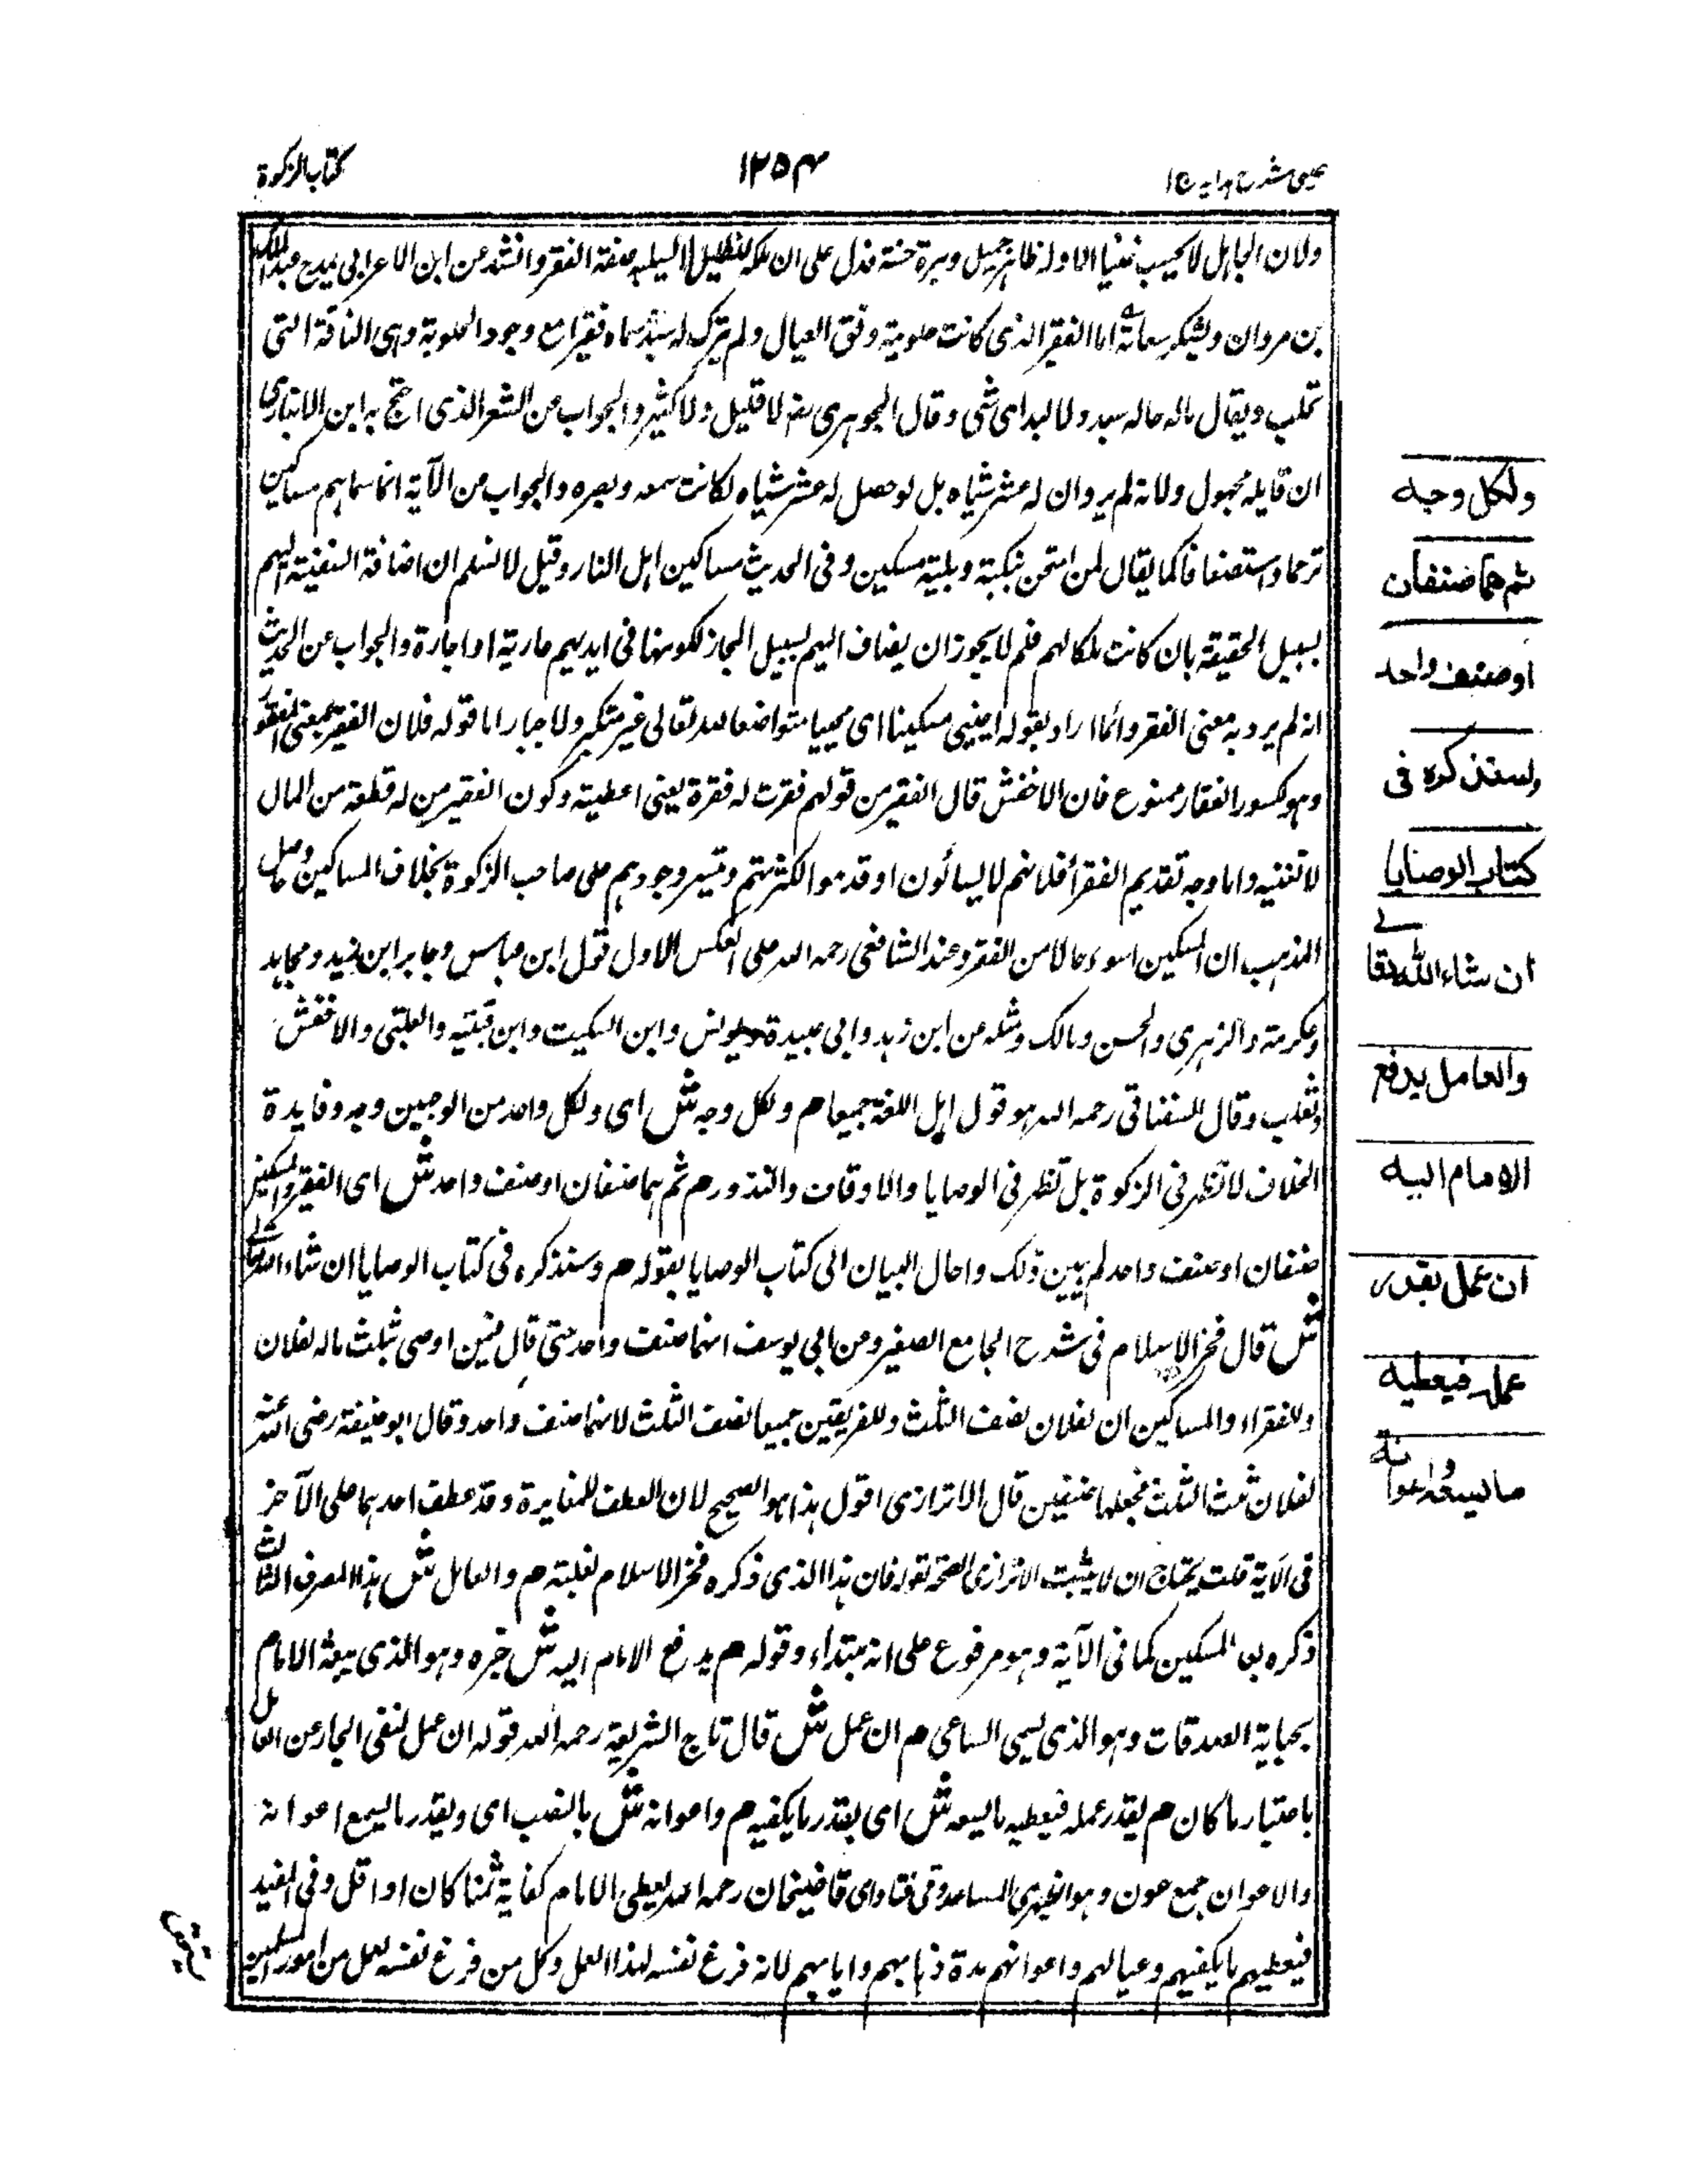 عینی شرح ہدایہ ج ۱
۱۲۵۴
کتاب الزکوة
ولان الجاہل لا یحسب غنیا الا وله ظاہر جمیل وبزة حسنة فدل على ان ملکه القلیل لا یسلبه صفة الفقر وانشد عن ابن الاعرابی یمدح عبد الملک
بن مروان ویشکو سعاته اما الفقیر الذی کانت حلوبته وفق العیال ولم یترک له سبد سماه فقیرا مع وجود الحلوبة وہی الناقة التی
تحلب ویقال ماله حاله سبد ولا لبد ای شی وقال الجوہری لا قلیل ولا کثیر والجواب من الشعر الذی احتج به ابن الانباری
ان قایله مجہول ولانه لم یرد ان له عشر شیاه بل لو حصل له عشر شیاه لکانت سمعه وبصره والجواب من الآیة انما سماہم مساکین
ترحما واستضعافا کما یقال لمن امتحن بنکبة وبلیة مسکین وفی الحدیث مساکین اہل النار وقیل لا نسلم ان اضافة السفینة الیہم
بسبیل الحقیقة بان کانت ملکا لہم فلم لا یجوز ان یضاف الیہم بسبیل المجاز لکونہا فی ایدیہم عاریة او اجارة والجواب عن الحدیث
انه لم یرد به معنى الفقر وانما اراد بقوله احینی مسکینا ای محییا متواضعا لله تعالى غیر متکبر ولا جبار اما قوله فلان الفقیر بمعنى المفقور
وہو کسور الفقار ممنوع فان الاخفش قال الفقیر من قولہم فقرت له فقرة یعنی اعطیته وکون الفقیر من له قطعة من المال
لا تغنیه واما وجه تقدیم الفقراء فلانہم لا یسألون او قدموا لکثرتہم وتیسر وجودہم على صاحب الزکوة بخلاف المساکین وحاصل
المذہب ان المسکین اسوء حالا من الفقیر وعند الشافعی رحمه الله على العکس الاول قول ابن عباس وجابر ابن زید ومجاہد
وعکرمة والزہری والحسن ومالک ومثله من ابن زید وابی عبیدة ویونس وابن السکیت وابن قتیبه والعتبی والاخفش
وثعلب وقال السغناقی رحمه الله ہو قول اہل اللغة جمیعا م ولکل وجه ش ای ولکل واحد من الوجہین وجه وفایدة
الخلاف لا تظہر فی الزکوة بل تظہر فی الوصایا والاوقاف والنذور م ثم ہما صنفان او صنف واحد ش ای الفقیر والمسکین
صنفان او صنف واحد لم یبین ذلک واحال البیان الى کتاب الوصایا بقوله م وسنذکره فی کتاب الوصایا ان شاء الله تعالے
ش قال فخر الاسلام فی شرح الجامع الصغیر وعن ابی یوسف انہما صنف واحد حتى قال فیمن اوصى بثلث ماله لفلان
وللفقراء والمساکین ان لفلان نصف الثلث وللفریقین جمیعا نصف الثلث لانہما صنف واحد وقال ابو حنیفة رضی الله عنه
لفلان ثلث الثلث فجعلہما صنفین قال الاترازی اقول ہذا ہو الصحیح لان العطف للمغایرة وقد عطف احدہما على الآخر
فی الآیة قلت یحتاج ان لا یثبت الاترازی الصحة بقوله فان ہذا الذی ذکره فخر الاسلام لغلبته م والعامل ش ہذا المصرف الثالث
ذکره بعد المسکین کما فی الآیة وہو مرفوع على انه مبتداء وقوله م یدفع الامام الیه ش خبره وہو الذی یبعثه الامام
بجبایة الصدقات وہو الذی یسمى الساعی م ان عمل ش قال تاج الشریعة رحمه الله قوله ان عمل لنفی المجاز عن العامل
باعتبار ما کان م بقدر عمله فیعطیه ما یسعه ش ای بقدر ما یکفیه م واعوانه ش بالنصب ای وبقدر ما یسع اعوانه
والاعوان جمع عون وہو الظہیر المساعد وفی فتاوى قاضیخان رحمه الله یعطى الامام کفایة ثمنا کان او اقل وفی المفید
فیعطیہم ما یکفیہم وعیالہم واعوانہم مدة ذہابہم وایابہم لانه فرغ نفسه لہذا العمل وکل من فرغ نفسه لعمل من امور المسلمین
ولکل وجه
ثم هما صنفان
او صنف واحد
وسنذكره فی
كتاب الوصايا
ان شاء الله تعالے
والعامل يدفع
الامام اليه
ان عمل بقدر
عمله فيعطيه
ما يسعه واعوانه
یستحق